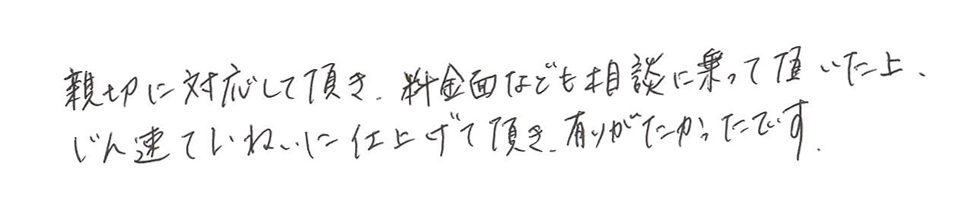 親切に対応して頂き、料金面なども相談に乗って頂いた上、
じん速ていねいに仕上げて頂き、有りがたかったです。